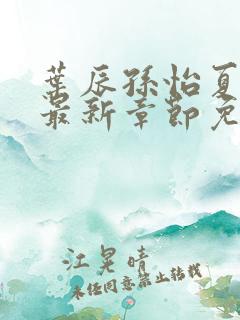 叶辰孙怡夏
最新章节免
江晃晴
未经同意禁止转载